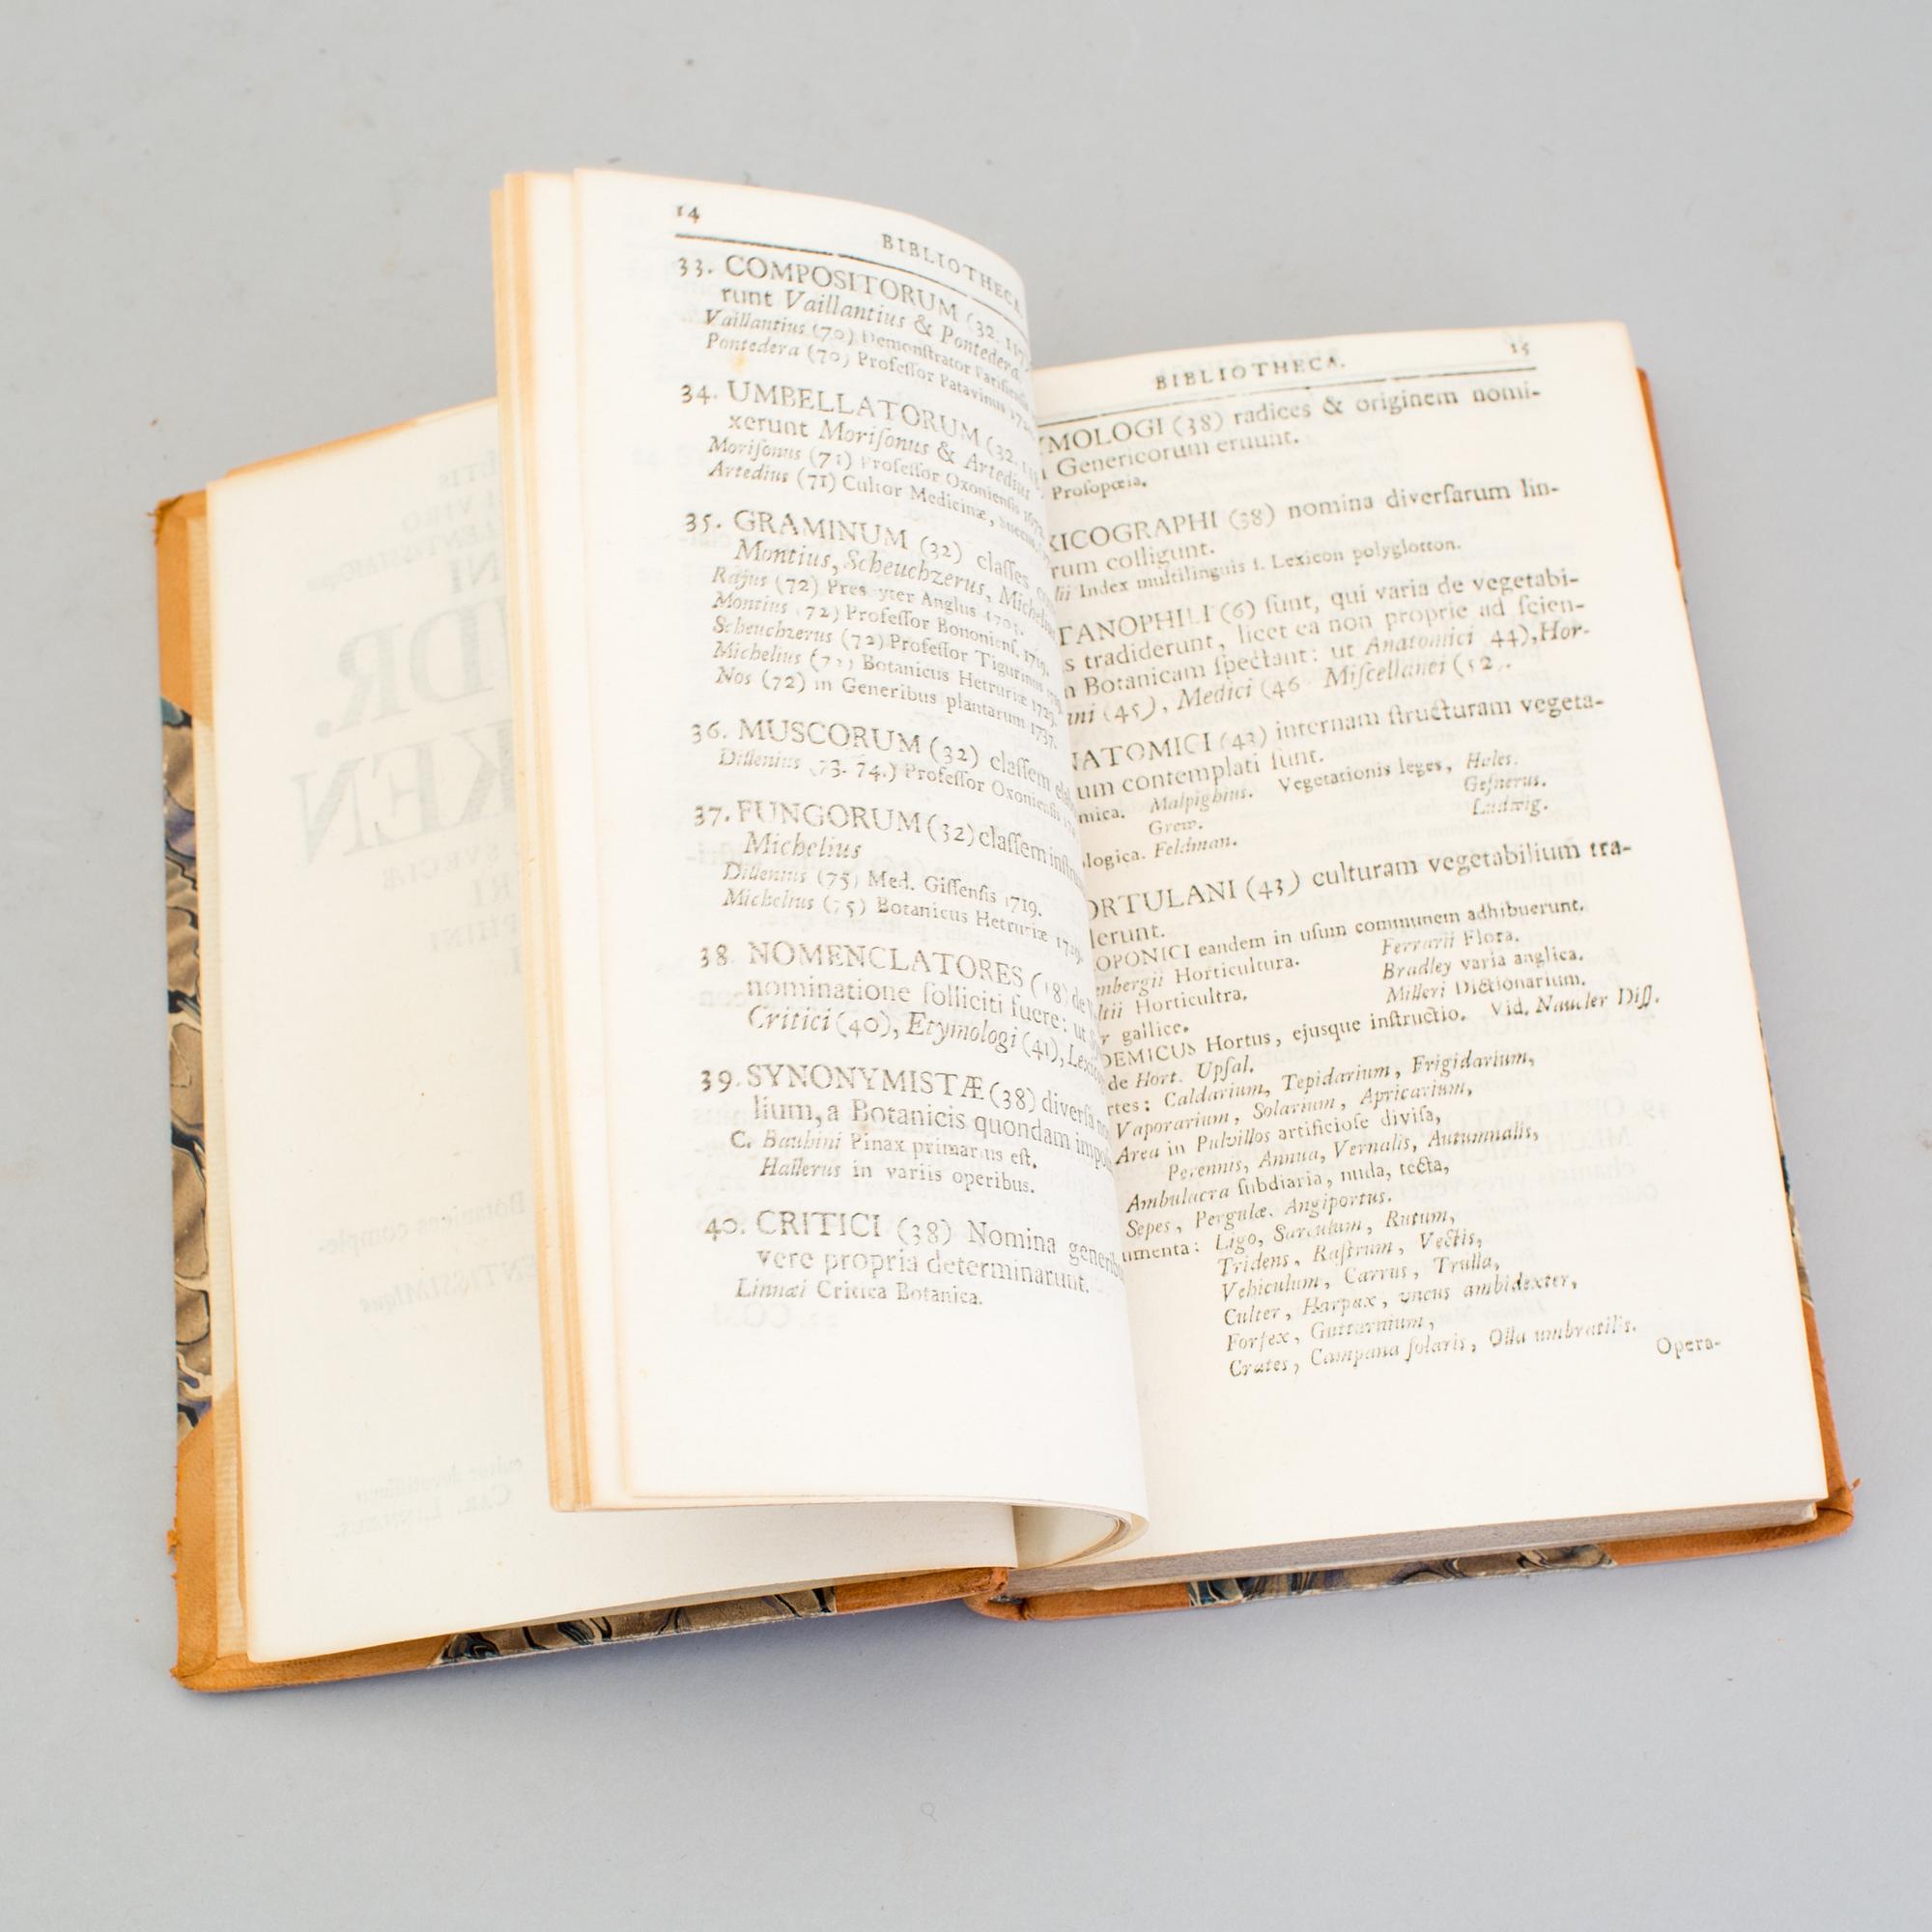 14
BIBLIOTHECA.
33. COMPOSITORUM (32. 117)
runt Vaillantius & Pontedera.
Vaillantius (70) Demonſtrator Pariſienſis
Pontedera (70) Profeſſor Patavinus
34. UMBELLATORUM (32.
xerunt Moriſonus & Artedius
Moriſonus (71) Profeſſor Oxonienſis
Artedius (71) Cultor Medicinæ,
35. GRAMINUM (32) claſſes
Montius, Scheuchzerus, Michelius
Rajus (72) Presbyter Anglus 1703.
Montius (72) Profeſſor Bononienſ. 1719.
Scheuchzerus (72) Profeſſor Tigurinus
Michelius (72) Botanicus Hetruriæ 1729.
Nos (72) in Generibus plantarum 1737.
36. MUSCORUM (32) claſſem
Dillenius (73. 74.) Profeſſor Oxonienſis
37. FUNGORUM (32) claſſem
Michelius
Dillenius (75) Med. Giſſenſis 1719.
Michelius (75) Botanicus Hetruriæ 1729.
38. NOMENCLATORES (18) de
nominatione ſolliciti fuere: ut
Critici (40), Etymologi (41),
39. SYNONYMISTÆ (38) diverſa
lium, a Botanicis quondam
C. Bauhini Pinax primarius eſt.
Hallerus in variis operibus.
40. CRITICI (38) Nomina
vere propria determinarunt.
Linnæi Critica Botanica.
BIBLIOTHECA.
15
YMOLOGI (38) radices & originem nomi-
Genericorum eruunt.
Proſopœia.
XICOGRAPHI (38) nomina diverſarum lin-
rum colligunt.
lii Index multilinguis ſ. Lexicon polyglotton.
TANOPHILI (6) ſunt, qui varia de vegetabi-
s tradiderunt, licet ea non proprie ad ſcien-
n Botanicam ſpectant: ut Anatomici 44), Hor-
ani (45), Medici (46 Miſcellanei (52).
NATOMICI (43) internam ſtructuram vegeta-
um contemplati ſunt.
mica. Malpighius. Vegetationis leges, Hales.
Grew. Geſnerus.
Ludwig.
logica. Feldman.
ORTULANI (43) culturam vegetabilium tra-
derunt.
OPONICI eandem in uſum communem adhibuerunt.
enbergii Horticultura. Ferrarii Flora.
ltii Horticultra. Bradley varia anglica.
r gallice. Milleri Dictionarium.
DEMICUS Hortus, ejusque inſtructio. Vid. Naucler Diſſ.
de Hort. Upſal.
rtes: Caldarium, Tepidarium, Frigidarium,
Vaporarium, Solarium, Apricarium,
Area in Pulvillos artificioſe diviſa,
Perennis, Annua, Vernalis, Autumnalis,
Ambulacra ſubdiaria, nuda, tecta,
Sepes, Pergulæ. Angiportus.
umenta: Ligo, Sarculum, Rutum,
Tridens, Raſtrum, Vectis,
Vehiculum, Carrus, Trulla,
Culter, Harpax, uncus ambidexter,
Forfex, Gutturnium,
Crates, Campana ſolaris, Olla umbratilis.
Opera-